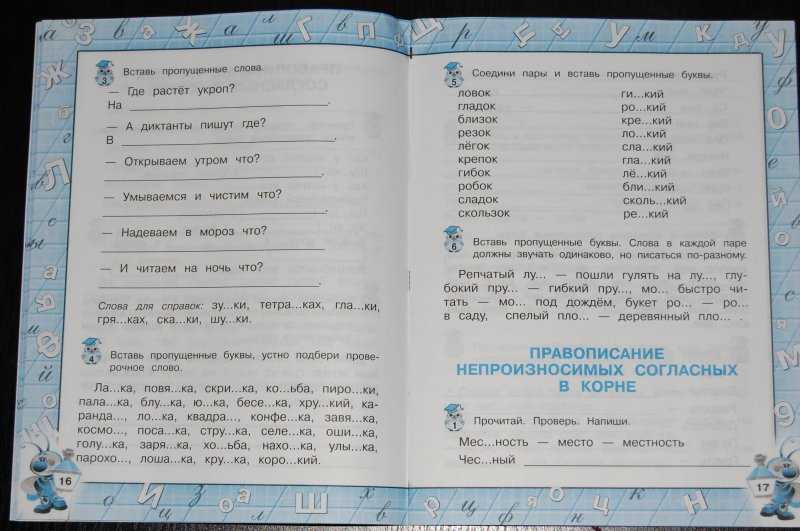 3
Вставь пропущенные слова.
— Где растёт укроп?
На
— А диктанты пишут где?
В
— Открываем утром что?
— Умываемся и чистим что?
— Надеваем в мороз что?
— И читаем на ночь что?
Слова для справок: зу...ки, тетра...ках, гла...ки,
гря...ках, ска...ки, шу...ки.
4
Вставь пропущенные буквы, устно подбери прове-
рочное слово.
Ла...ка, повя...ка, скри...ка, ко...ьба, пиро...ки,
пала...ка, блу...ка, ю...ка, бесе...ка, хру...кий, ка-
ранда..., ло...ка, квадра..., конфе...ка, завя...ка,
космо..., поса...ка, стру...ка, селе...ка, оши...ка,
голу...ка, заря...ка, хо...ьба, нахо...ка, улы...ка,
парохо..., лоша...ка, кру...ка, коро...кий.
16
5
Соедини пары и вставь пропущенные буквы.
ловок ги...кий
гладок ро...кий
близок кре...кий
резок ло...кий
лёгок сла...кий
крепок гла...кий
гибок лё...кий
робок бли...кий
сладок сколь...кий
скользок ре...кий
6
Вставь пропущенные буквы. Слова в каждой паре
должны звучать одинаково, но писаться по-разному.
Репчатый лу... — пошли гулять на лу..., глу-
бокий пру... — гибкий пру..., мо... быстро чи-
тать — мо... под дождём, букет ро... — ро...
в саду, спелый пло... — деревянный пло... .
ПРАВОПИСАНИЕ
НЕПРОИЗНОСИМЫХ СОГЛАСНЫХ
В КОРНЕ
1
Прочитай. Проверь. Напиши.
Мес...ность — место — местность
Чес...ный
17